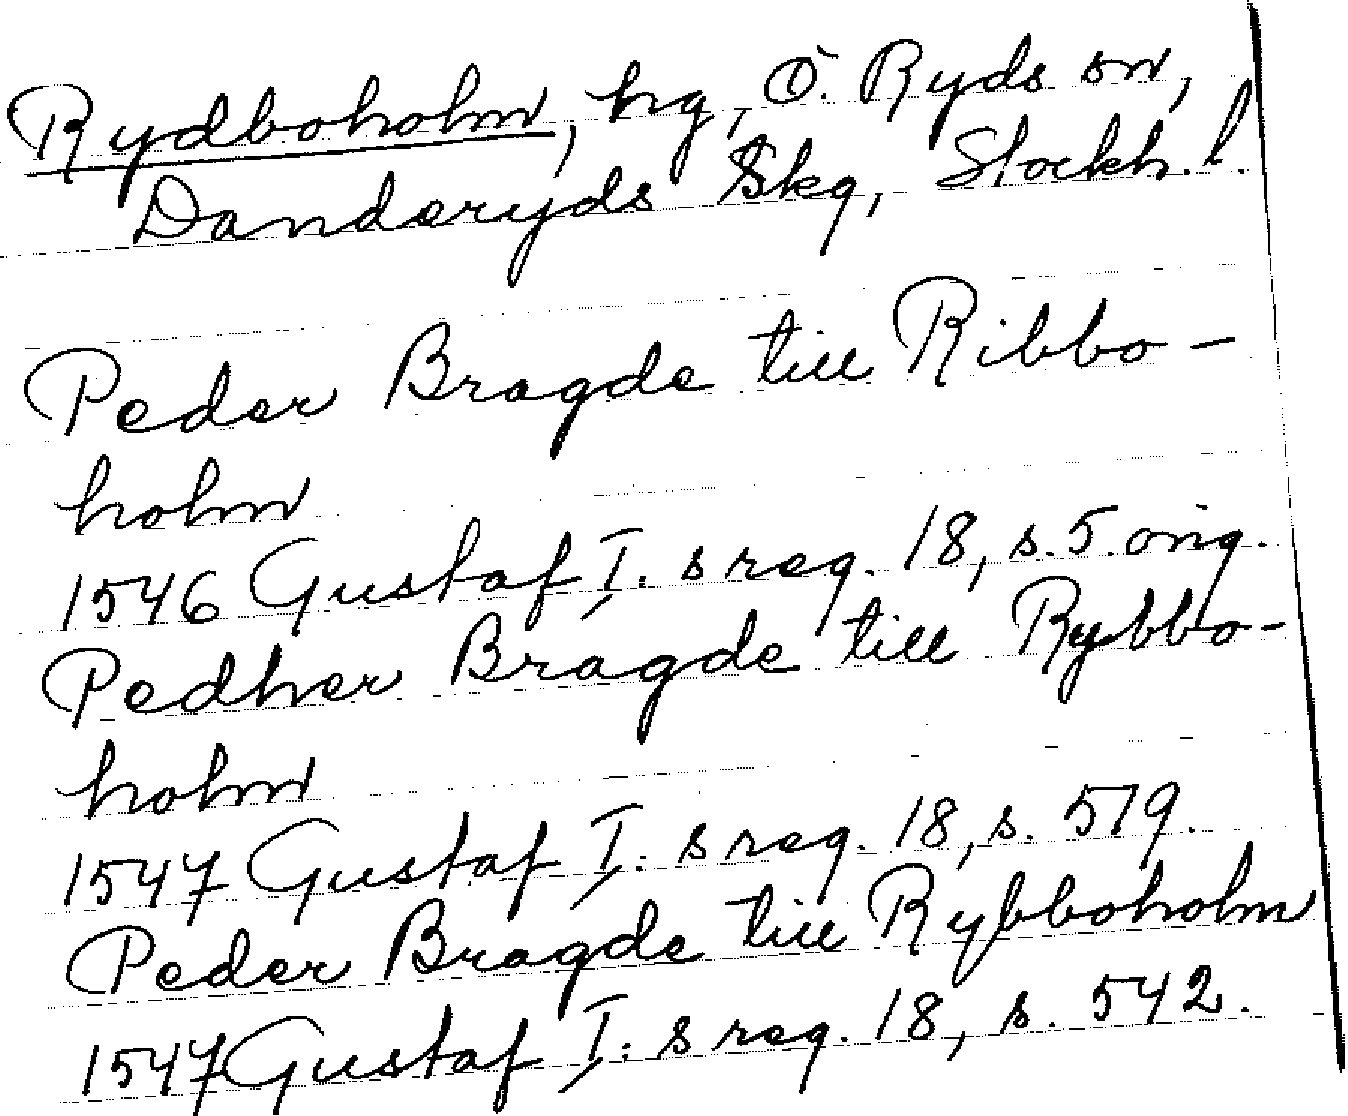 Rydboholm, hg, Ö. Ryds sn,
Danderyds Skg, Stockh. l.
Peder Bragde till Ribbo-
holm
1546 Gustaf I. s reg. 18, s. 5. orig.
Pedher Bragde till Rybbo-
holm
1547 Gustaf I. s reg. 18, s. 519.
Peder Bragde till Rybboholm
1547 Gustaf I. s reg. 18, s. 542.